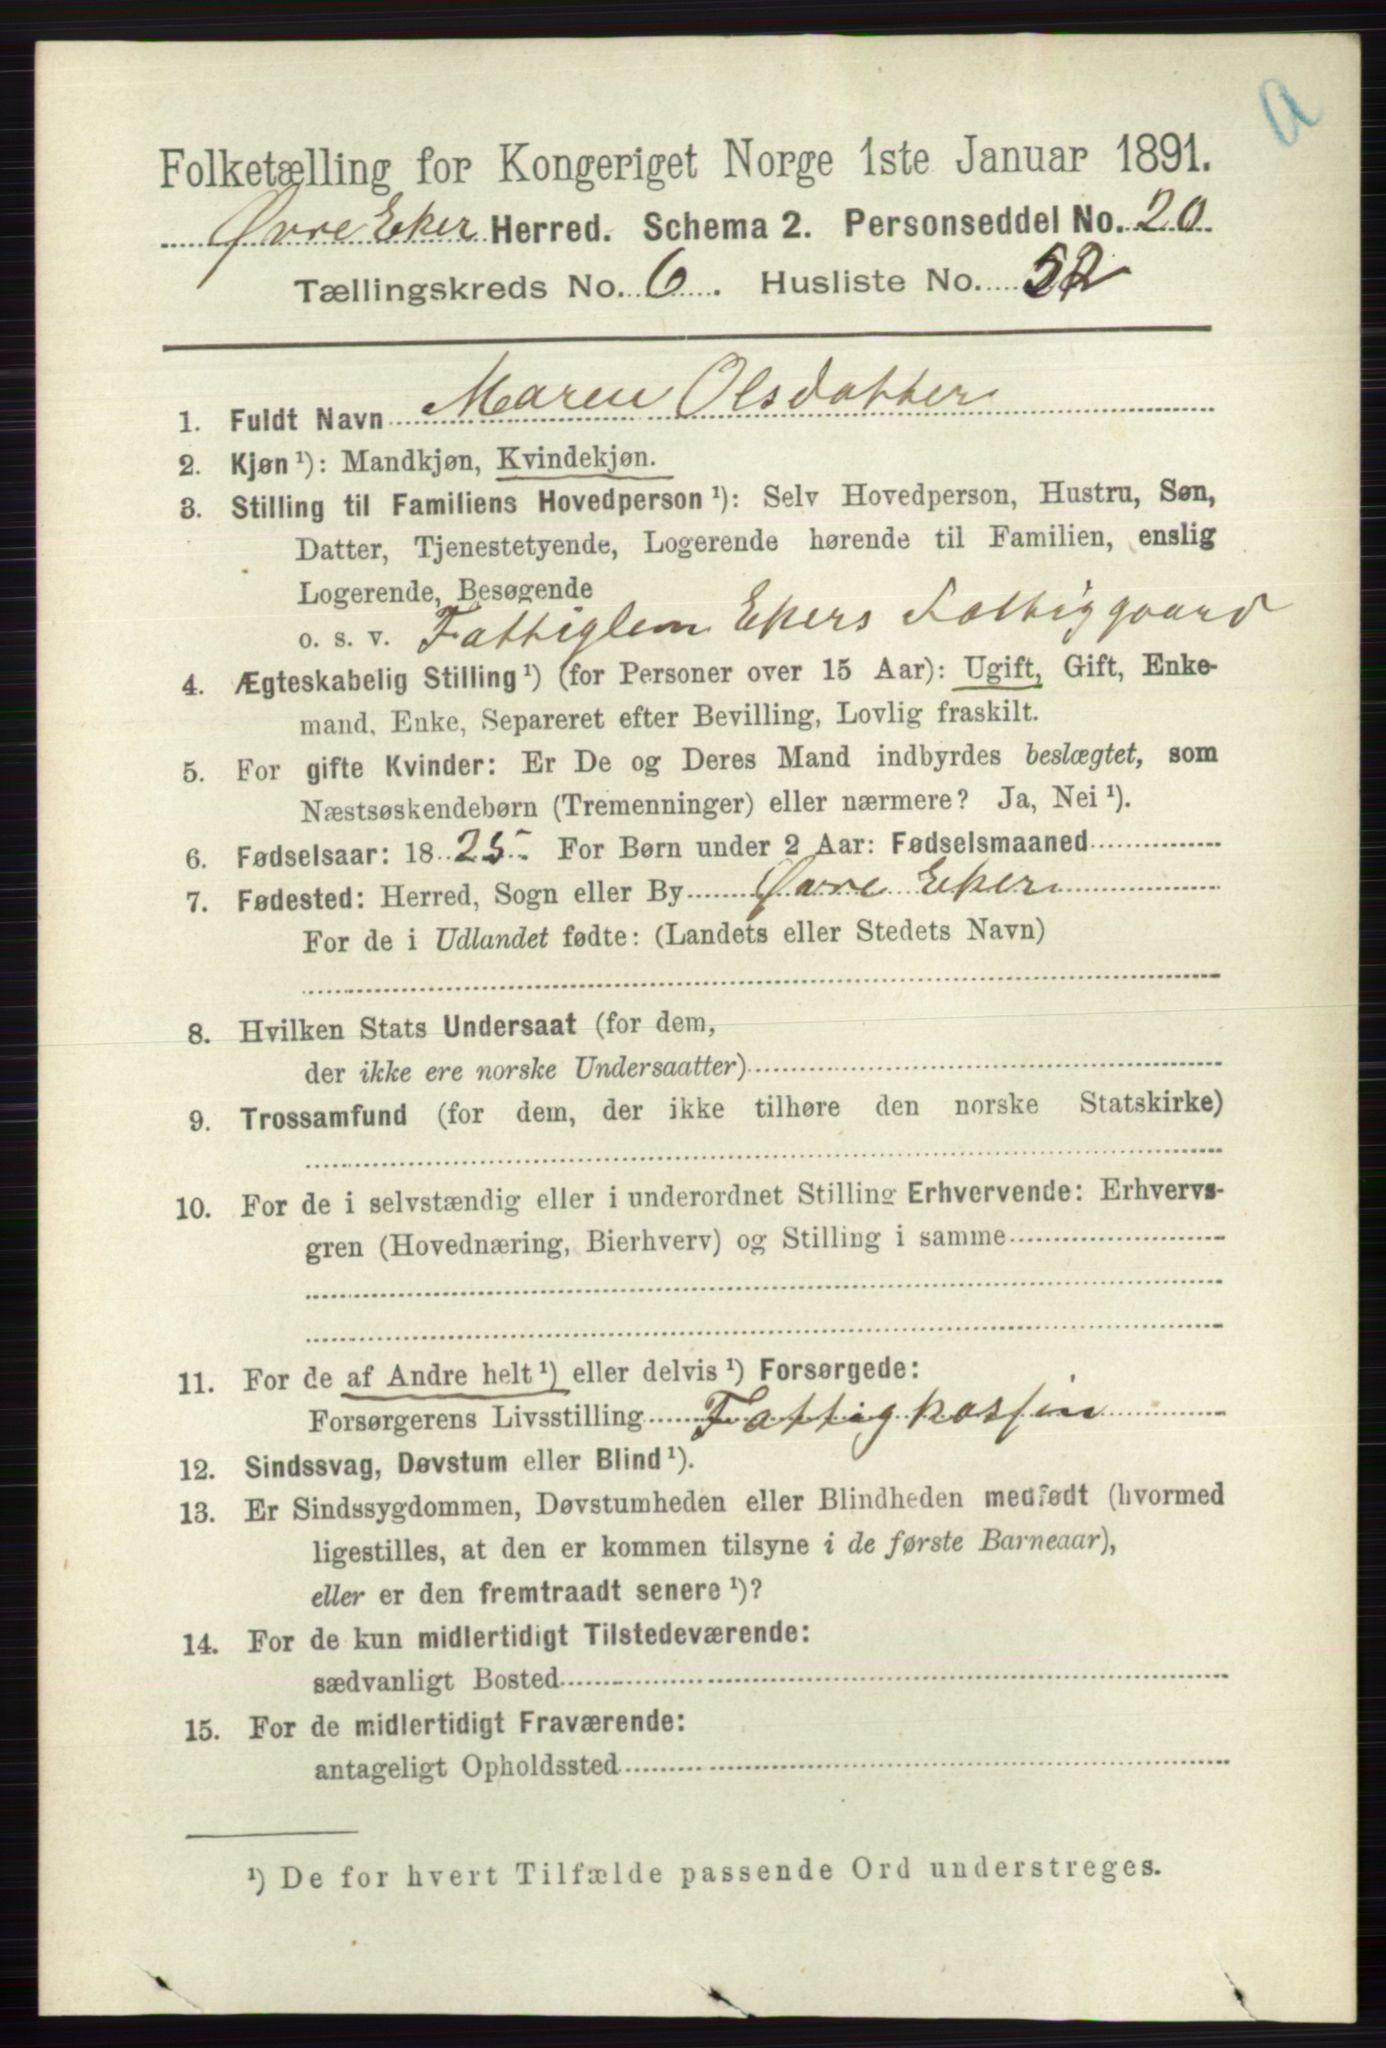 a
Folketælling for Kongeriget Norge 1ste Januar 1891.
Øvre Eker Herred. Schema 2. Personseddel No. 20
Tællingskreds No. 6. Husliste No. 52
1. Fuldt Navn Maren Olsdatter
2. Kjøn ¹): Mandkjøn, Kvindekjøn.
3. Stilling til Familiens Hovedperson ¹): Selv Hovedperson, Hustru, Søn,
Datter, Tjenestetyende, Logerende hørende til Familien, enslig
Logerende, Besøgende
o. s. v. Fattiglem Ekers Fattiggaard
4. Ægteskabelig Stilling ¹) (for Personer over 15 Aar): Ugift, Gift, Enke-
mand, Enke, Separeret efter Bevilling, Lovlig fraskilt.
5. For gifte Kvinder: Er De og Deres Mand indbyrdes beslægtet, som
Næstsøskendebørn (Tremenninger) eller nærmere? Ja, Nei ¹).
6. Fødselsaar: 1825. For Børn under 2 Aar: Fødselsmaaned
7. Fødested: Herred, Sogn eller By Øvre Eker
For de i Udlandet fødte: (Landets eller Stedets Navn)
8. Hvilken Stats Undersaat (for dem,
der ikke ere norske Undersaatter)
9. Trossamfund (for dem, der ikke tilhøre den norske Statskirke)
10. For de i selvstændig eller i underordnet Stilling Erhvervende: Erhvervs-
gren (Hovednæring, Bierhverv) og Stilling i samme
11. For de af Andre helt ¹) eller delvis ¹) Forsørgede:
Forsørgerens Livsstilling Fattigkassen
12. Sindssvag, Døvstum eller Blind ¹).
13. Er Sindssygdommen, Døvstumheden eller Blindheden medfødt (hvormed
ligestilles, at den er kommen tilsyne i de første Barneaar),
eller er den fremtraadt senere ¹)?
14. For de kun midlertidigt Tilstedeværende:
sædvanligt Bosted
15. For de midlertidigt Fraværende:
antageligt Opholdssted
¹) De for hvert Tilfælde passende Ord understreges.